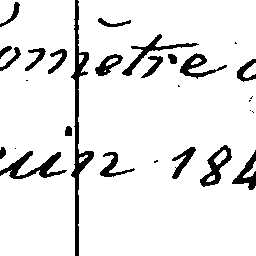 omètre
uin 184